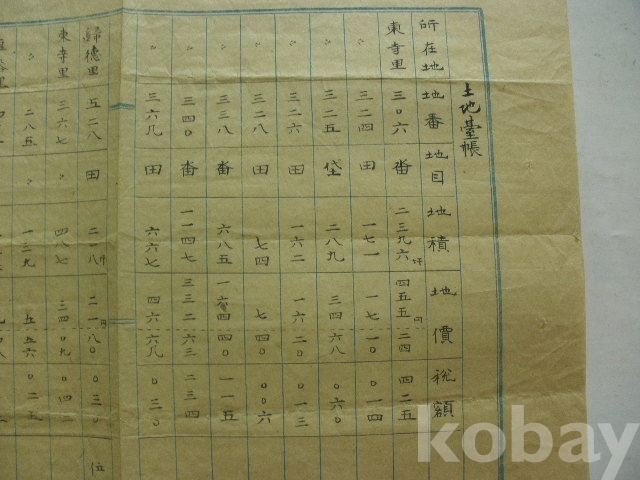 土地臺帳
所在地 地番 地目 地積 地價 稅額
東寺里 三〇六 畓 二三九六坪 四五五円二四 四二五
〃 三二四 田 一七一 一七一〇 〇一四
〃 三二五 垈 二八九 三四六八 〇六〇
〃 三二六 田 一六二 一六二〇 〇一三
〃 三二八 田 七四 七四〇 〇〇六
〃 三三八 畓 六八五 〇 一一五
〃 三四〇 畓 一一四七 三三二六三 二三四
〃 三六九 田 六六七 四六六九 〇三〇
歸德里 五二八 田 二一八坪 二一円八〇 〇三〇
東寺里 三六七 〃 四八七 三四〇九 〇四二
〃 二八五 〃 一三九 五五六 〇二五
位
kobay